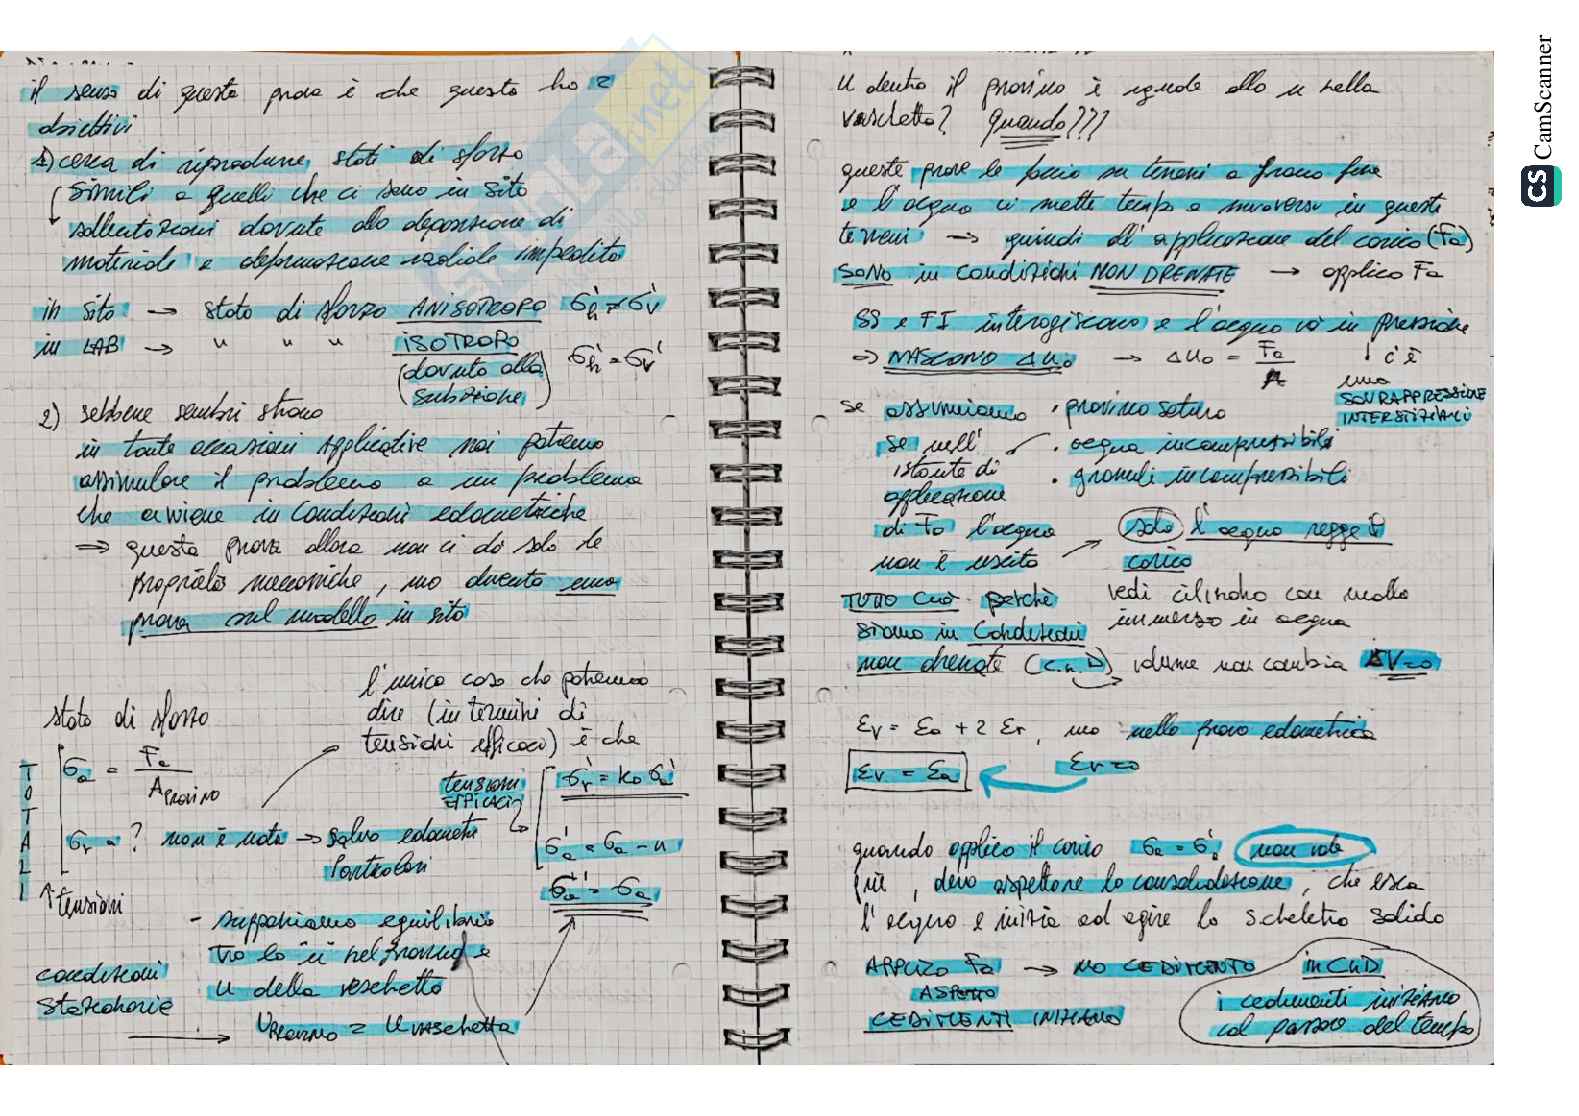 il senso di questa prova è che questa ha 2
obiettivi
1) cerca di riprodurre stati di sforzo
simili a quelli che ci sono in sito
sollecitazioni dovute alla deposizione di
materiale e deformazione radiale impedita
in sito → stato di sforzo ANISOTROPO σ'h ≠ σ'v
in LAB → " " " ISOTROPO σ'h = σ'v
(dovuto alla
suzione)
2) sebbene sembri strano
in tante occasioni applicative noi potremo
assimilare il problema a un problema
che avviene in condizioni edometriche
⇒ questa prova allora non ci dà solo le
proprietà meccaniche, ma diventa una
prova sul modello in sito
l'unica cosa che potremmo
dire (in termini di
tensioni efficaci) è che
stato di sforzo
TOTALI
σa = Fa / A PROVINO
σr = ? non è nota → salvo edometri
particolari
↑ tensioni
tensioni
EFFICACI
σ'r = k0 σ'a
σ'a = σa - u
σ'a = σa
- supponiamo equilibrio
tra la u nel provino e
u della vaschetta
condizioni
stazionarie
→ u PROVINO = u vaschetta
u dentro il provino è uguale alla u nella
vaschetta? Quando???
queste prove le faccio su terreni a grana fine
e l'acqua ci mette tempo a muoversi in questi
terreni → quindi all'applicazione del carico (Fa)
SONO in condizioni NON DRENATE → applico Fa
SS e FI interagiscono e l'acqua va in pressione
⇒ NASCONO Δu0 → Δu0 = Fa / A ↓ c'è
una
SOVRAPPRESSIONE
INTERSTIZIALI
se assumiamo · provino saturo
· acqua incompressibili
· granuli incompressibili
se nell'
istante di
applicazione
di Fa l'acqua
non è uscita → solo l'acqua regge il
carico
vedi cilindro con molla
immerso in acqua
TUTTO CIÒ perchè
siamo in condizioni
non drenate (C.n.D) volume non cambia ΔV=0
εv = εa + 2 εr, ma nella prova edometrica
εr=0
εv = εa
quando applico il carico σa = σ'a non vale
più, devo aspettare la consolidazione, che esca
l'acqua e inizia ad agire lo scheletro solido
APPLICO Fa → NO CEDIMENTO in CnD
ASPETTO
CEDIMENTI INIZIANO
i cedimenti iniziano
col passare del tempo
CS CamScanner